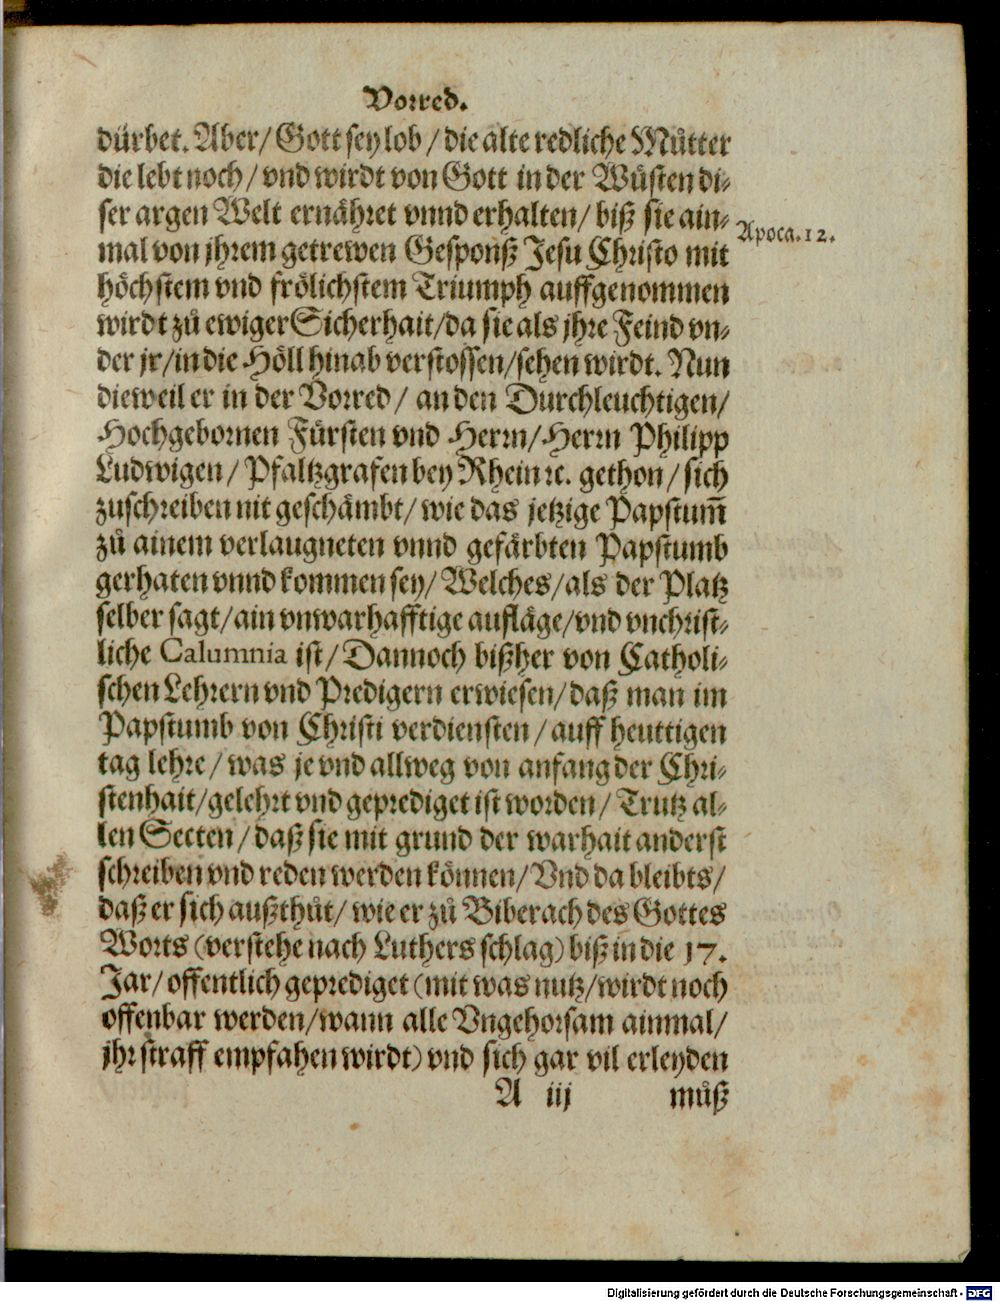 Vorred.
dürbet. Aber / Gott sey lob / die alte redliche Můtter
die lebt noch / vnd wirdt von Gott in der Wüsten di⸗
ser argen Welt ernähret vnnd erhalten / biß sie ain⸗
Apoca. 12.
mal von jhrem getrewen Gesponß Jesu Christo mit
höchstem vnd frölichstem Triumph auffgenommen
wirdt zů ewiger Sicherhait / da sie als jhre Feind vn⸗
der jr / in die Höll hinab verstossen / sehen wirdt. Nun
dieweil er in der Vorred / an den Durchleuchtigen /
Hochgebornen Fürsten vnd Herrn / Herrn Philipp
Ludwigen / Pfaltzgrafen bey Rhein ꝛc. gethon / sich
zuschreiben nit geschämbt / wie das jetzige Papstum̃
zů ainem verlaugneten vnnd gefärbten Papstumb
gerhaten vnnd kommen sey / Welches / als der Platz
selber sagt / ain vnwarhafftige aufläge / vnd vnchrist⸗
liche Calumnia ist / Dannoch bißher von Catholi⸗
schen Lehrern vnd Predigern erwiesen / daß man im
Papstumb von Christi verdiensten / auff heuttigen
tag lehre / was je vnd allweg von anfang der Chri⸗
stenhait / gelehrt vnd geprediget ist worden / Trutz al⸗
len Secten / daß sie mit grund der warhait anderst
schreiben vnd reden werden können / Vnd da bleibts /
daß er sich außthůt / wie er zů Biberach des Gottes
Worts (verstehe nach Luthers schlag) biß in die 17.
Jar / offentlich geprediget (mit was nutz / wirdt noch
offenbar werden / wann alle Vngehorsam ainmal /
jhr straff empfahen wirdt) vnd sich gar vil erleyden
A iij můß
Digitalisierung gefördert durch die Deutsche Forschungsgemeinschaft - DFG